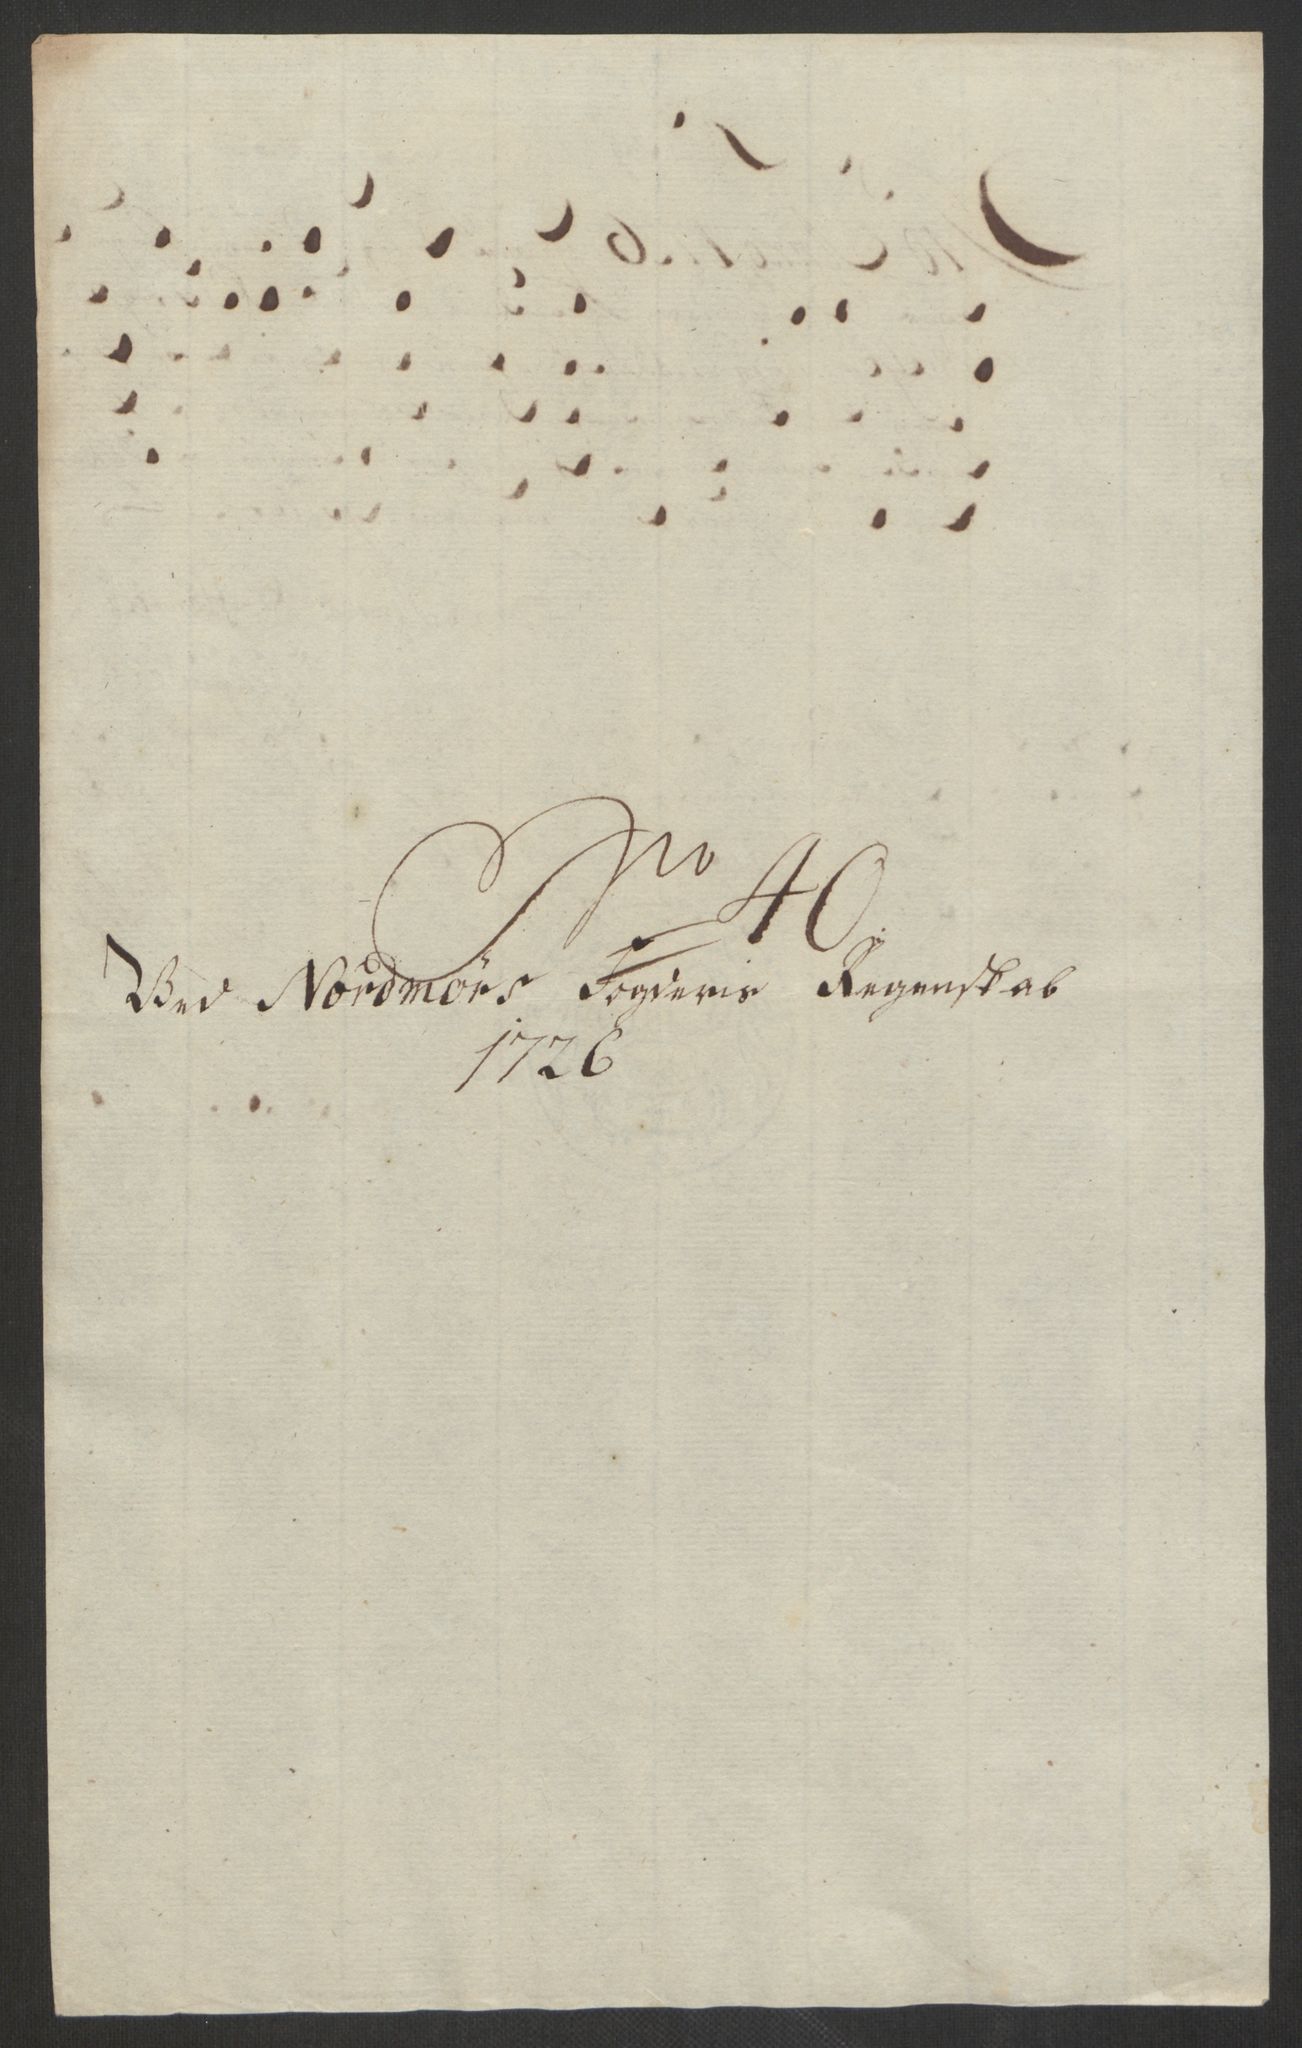 No 40
Ved Nordmörs Fogderie Regenskab
1726